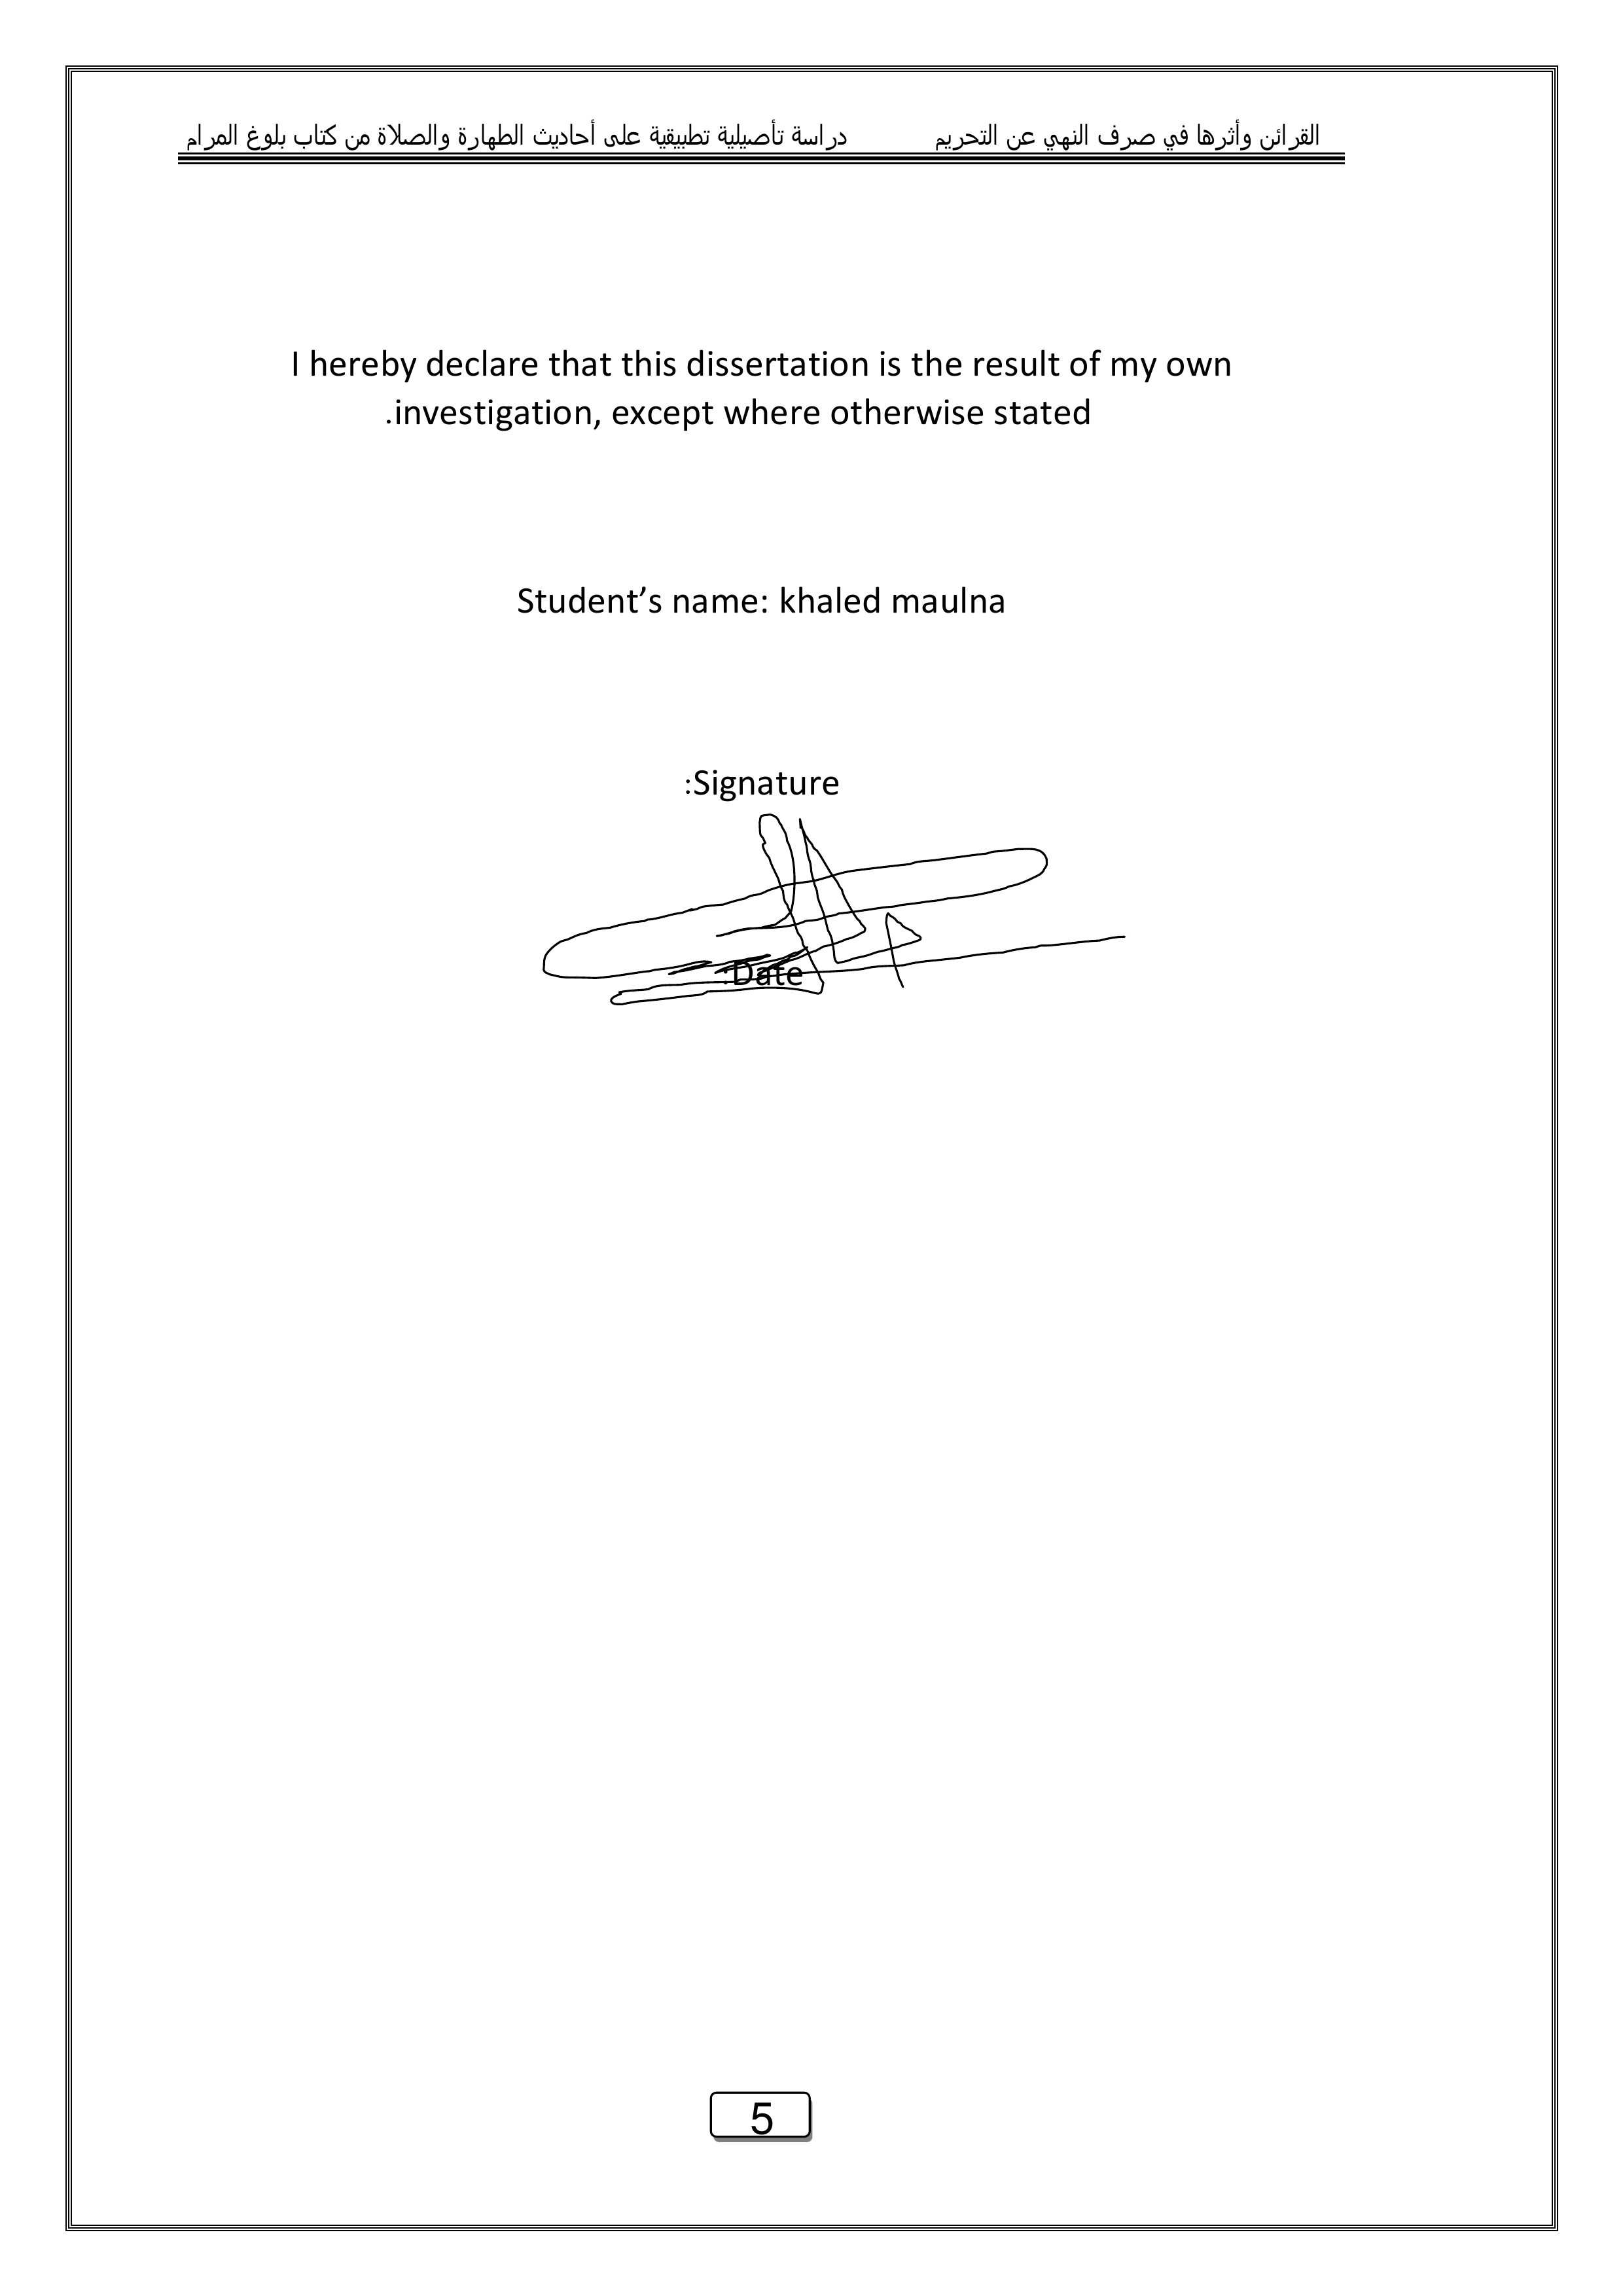 القرائن وأثرها في صرف النهي عن التحريم دراسة تأصيلية تطبيقية على أحاديث الطهارة والصلاة من كتاب بلوغ المرام
I hereby declare that this dissertation is the result of my own
.investigation, except where otherwise stated
Student’s name: khaled maulna
:Signature
:Date
5